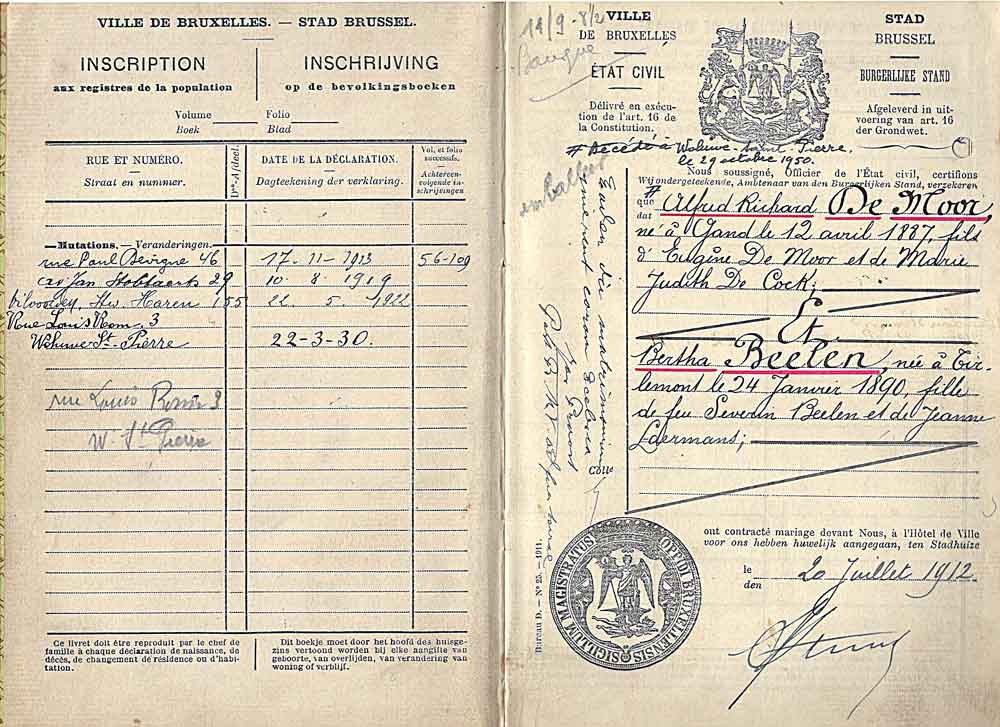 VILLE DE BRUXELLES. — STAD BRUSSEL.
INSCRIPTION
aux registres de la population
INSCHRIJVING
op de bevolkingsboeken
Volume Folio
Boek Blad
RUE ET NUMÉRO.
Straat en nummer.
DATE DE LA DÉCLARATION.
Dagteekening der verklaring.
Vol. et folio
successifs.
Achtereen-
volgende in-
schrijvingen
—Mutations. — Veranderingen.—
rue Paul Devigne 46 17-11-1913 56-109
av Jan Stobbaerts 29 10 8 1919
Haren 155 22 5 1922
Rue Louis Rom. 3
Woluwe St-Pierre 22-3-30.
rue Louis 3
W. St Pierre
Ce livret doit être reproduit par le chef de
famille à chaque déclaration de naissance, de
décès, de changement de résidence ou d'habi-
tation.
Dit boekje moet door het hoofd des huisge-
zins vertoond worden bij elke aangifte van
geboorte, van overlijden, van verandering van
woning of verblijf.
VILLE
DE BRUXELLES
ÉTAT CIVIL
Délivré en exécu-
tion de l'art. 16 de
la Constitution.
STAD
BRUSSEL
BURGERLIJKE STAND
Afgeleverd in uit-
voering van art. 16
der Grondwet.
# Décédé à Woluwe-Saint-Pierre,
le 29 octobre 1950.
Nous soussigné, Officier de l'État civil, certifions
Wij ondergeteekende, Ambtenaar van den Burgerlijken Stand, verzekeren
que # Alfred Richard De Moor,
dat
né à Gand le 12 avril 1887, fils
d'Eugène De Moor et de Marie
Judith De Cock;
Et
Bertha Beelen, née à Tir-
lemont le 24 Janvier 1890, fille
de feu Severin Beelen et de Jeanne
Laermans;
ont contracté mariage devant Nous, à l'Hôtel de Ville
voor ons hebben huwelijk aangegaan, ten Stadhuize
le
den
20 Juillet 1912.
Eadem die matrimonium
coram
Bureau D. — N° 25. — 1911.
SIGILLUM MAGISTRATUS OPPIDI BRUXELLENSIS